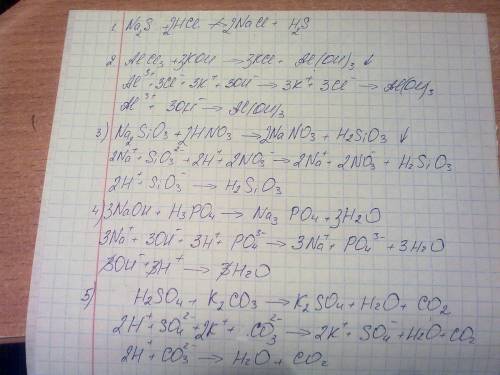 1. Na2S + 2HCl ↛ 2NaCl + H2S
2 AlCl3 + 3KOH → 3KCl + Al(OH)3 ↓
Al3+ + 3Cl- + 3K+ + 3OH- → 3K+ + 3Cl- → Al(OH)3
Al3+ + 3OH- → Al(OH)3
3) Na2SiO3 + 2HNO3 → 2NaNO3 + H2SiO3 ↓
2Na+ + SiO3 2- + 2H+ + 2NO3- → 2Na+ + 2NO3- + H2SiO3
2H+ + SiO3- → H2SiO3
4) 3NaOH + H3PO4 → Na3PO4 + 3H2O
3Na+ + 3OH- + 3H+ + PO4 3- → 3Na+ + PO4 3- + 3H2O
3OH- + 3H+ → 3H2O
5) H2SO4 + K2CO3 → K2SO4 + H2O + CO2
2H+ + SO4 2- + 2K+ + CO3 2- → 2K+ + SO4- + H2O + CO2
2H+ + CO3 2- → H2O + CO2